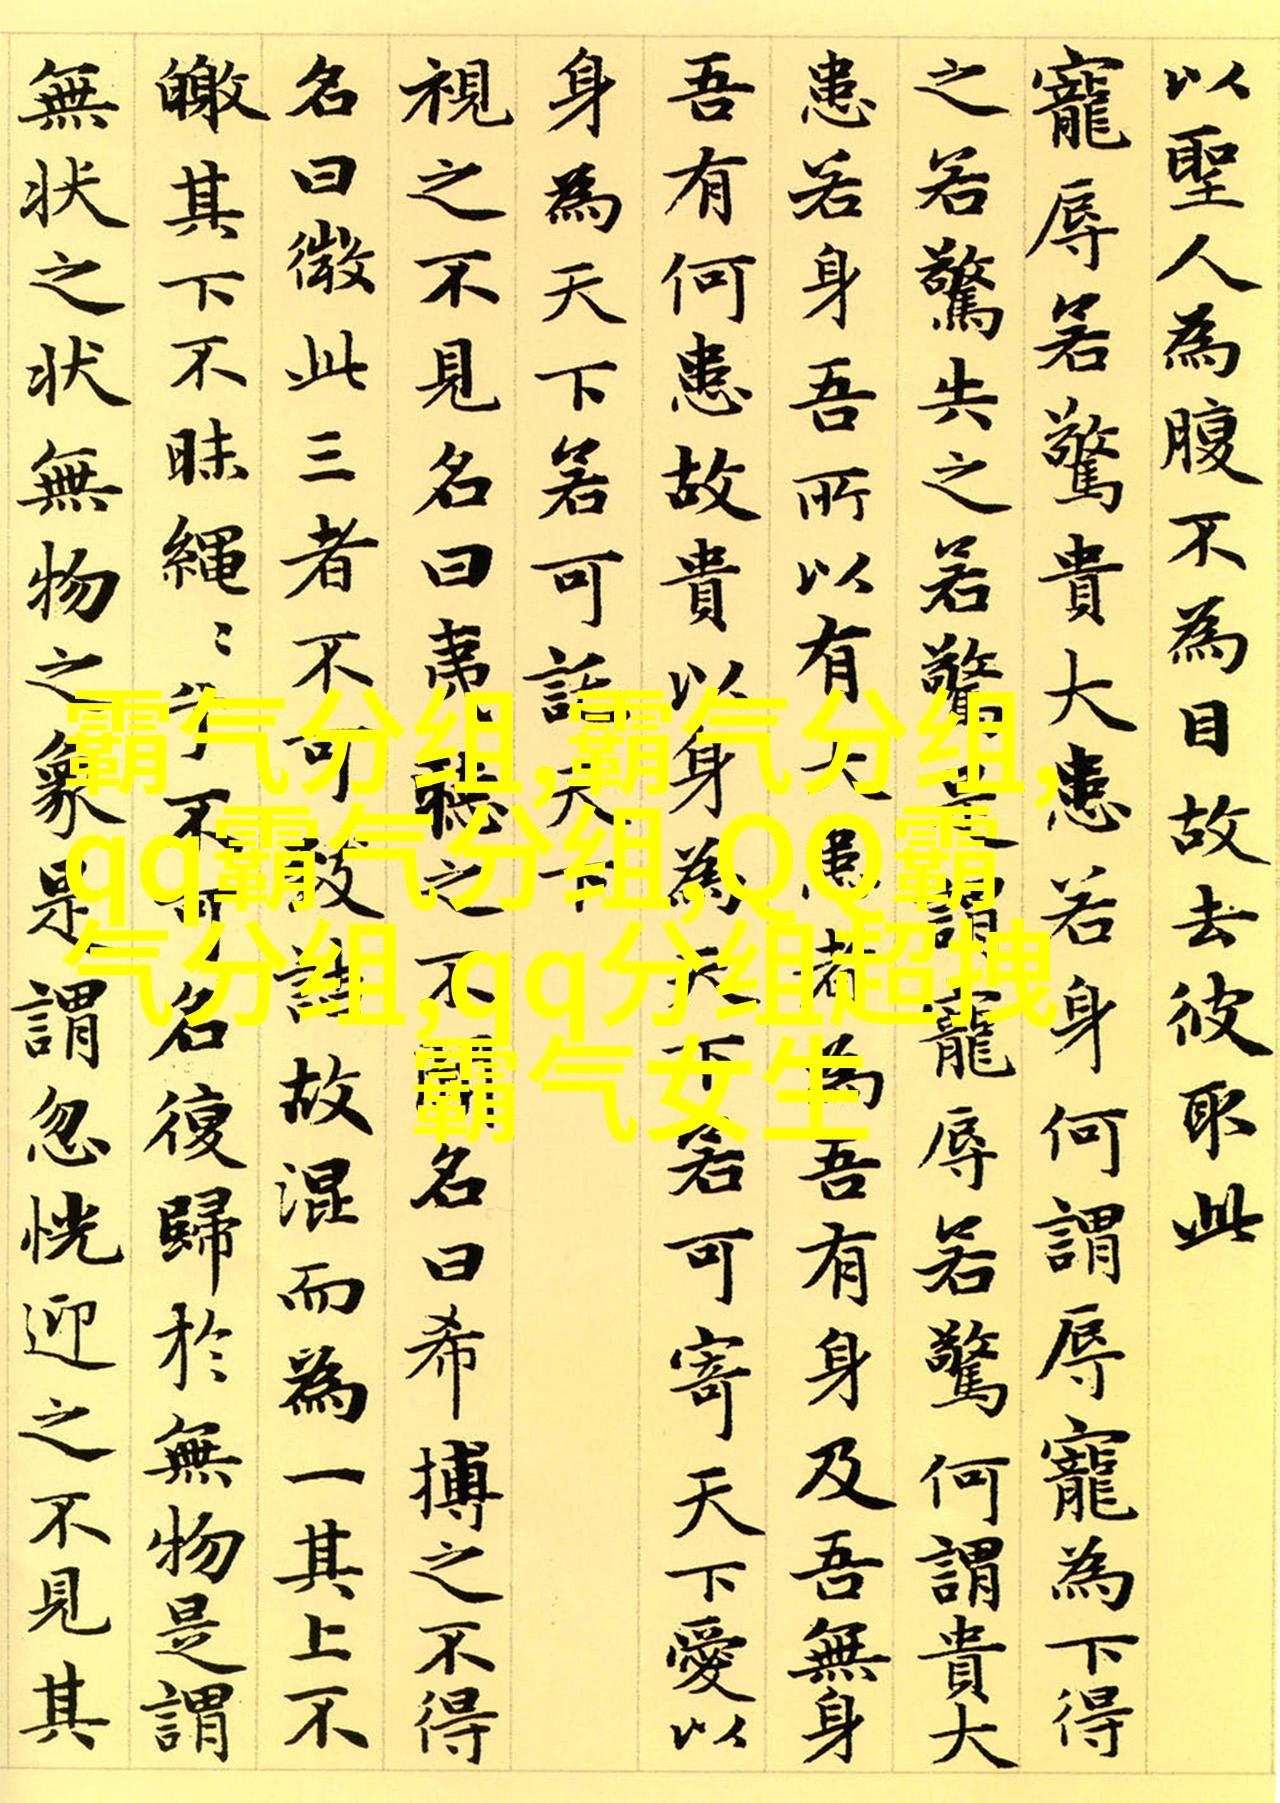 以聖人為腹不為目故去彼取此
寵辱若驚貴大患若身何謂辱寵為下得
之若驚失之若驚是謂寵辱若驚何謂貴大
患若身吾所以有大患者為吾有身及吾無身
吾有何患故貴以身為天下若可寄天下愛以
身為天下若可託天下
視之不見名曰夷聽之不聞名曰希搏之不得
名曰微此三者不可致詰故混而為一其上不
皦其下不昧繩〻兮不可名復歸於無物是謂
無狀之狀無物之象是謂忽恍迎之不見其
霸气分组,霸气分组,
qq霸气分组,QQ霸
气分组,qq分组超拽
霸气女生